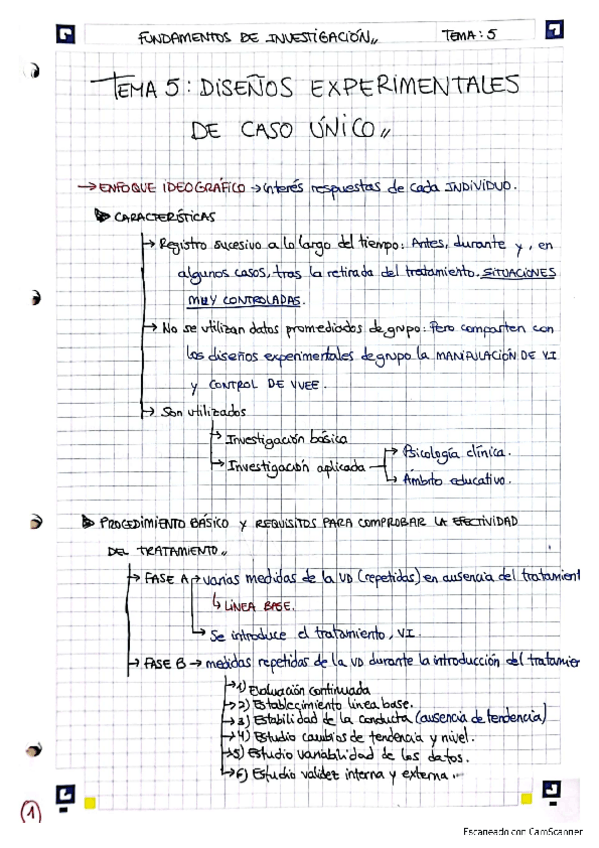 FUNDAMENTOS DE INVESTIGACIÓN,, TEMA: 5
TEMA 5: DISEÑOS EXPERIMENTALES
DE CASO ÚNICO,,
→ ENFOQUE IDEOGRÁFICO → interés respuestas de cada INDIVIDUO.
CARACTERÍSTICAS
→ Registro sucesivo a lo largo del tiempo: Antes, durante y, en
algunos casos, tras la retirada del tratamiento. SITUACIONES
MUY CONTROLADAS.
→ No se utilizan datos promediados de grupo: Pero comparten con
los diseños experimentales de grupo la MANIPULACIÓN DE VI
y CONTROL DE VVEE.
→ Son utilizados
→ Investigación básica
→ Investigación aplicada → Psicología clínica.
→ Ámbito educativo.
PROCEDIMIENTO BÁSICO Y REQUISITOS PARA COMPROBAR LA EFECTIVIDAD
DEL TRATAMIENTO,,
→ FASE A → varias medidas de la VD (repetidas) en ausencia del tratamient
↳ LÍNEA BASE.
→ Se introduce el tratamiento, VI.
→ FASE B → medidas repetidas de la VD durante la introducción del tratamier
→ 1) Evaluación continuada
→ 2) Establecimiento línea base.
→ 3) Estabilidad de la conducta (ausencia de tendencia)
→ 4) Estudio cambios de tendencia y nivel.
→ 5) Estudio variabilidad de los datos.
→ 6) Estudio validez interna y externa.
(1)
Escaneado con CamScanner